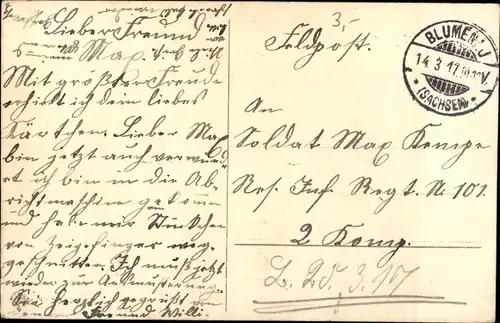 Lieber Freund
Max.
Mit größter Freude
erhielt ich dein liebes
Kärtchen. Lieber Max
bin jetzt auch verwund
et ich bin in die Ab
richtmaschine gekommen
und habe mir Stückchen
von Zeigefinger weg
geschnitten. Ich muß jetzt
wieder zur Ausmusterung.
Sei herzlich gegrüßt von
deinem Freund Willi.
3,-
Feldpost.
BLUMENAU
14.3.17.
*(SACHSEN)*
An
Soldat Max Kempe
Res. Inf. Regt. N. 101.
2 Komp.